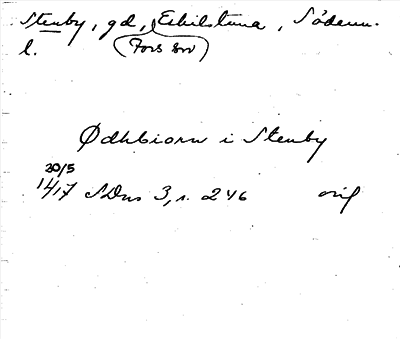 Stenby, gd, Eskilstuna, Söderm.
l. (Fors sn)
Ødhbiorn i Stenby
20/5
1417 SDns 3, s. 246 orig